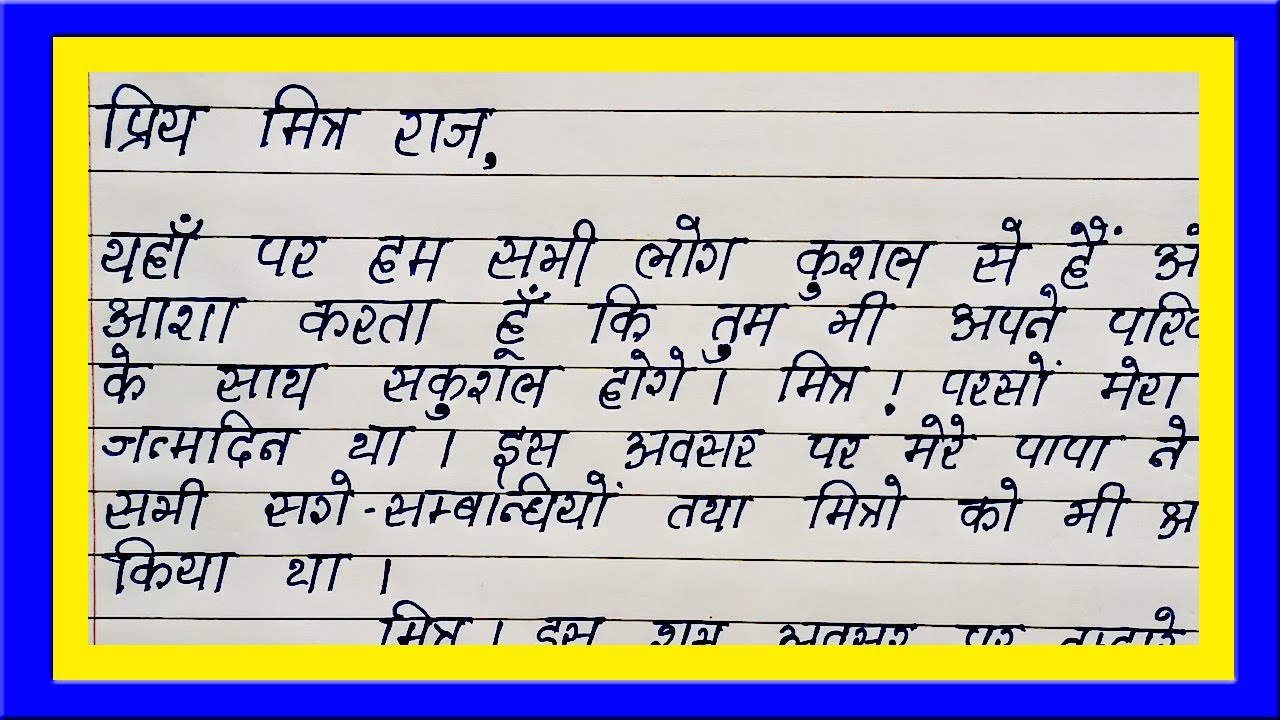 प्रिय मित्र राज,
यहाँ पर हम सभी लोग कुशल से हैं
आशा करता हूँ कि तुम भी अपने
के साथ सकुशल होगे। मित्र! परसों मेरा
जन्मदिन था। इस अवसर पर मेरे पापा ने
सभी सगे-सम्बन्धियों तथा मित्रो को भी
किया था।
मित्र। इस शुभ अवसर पर